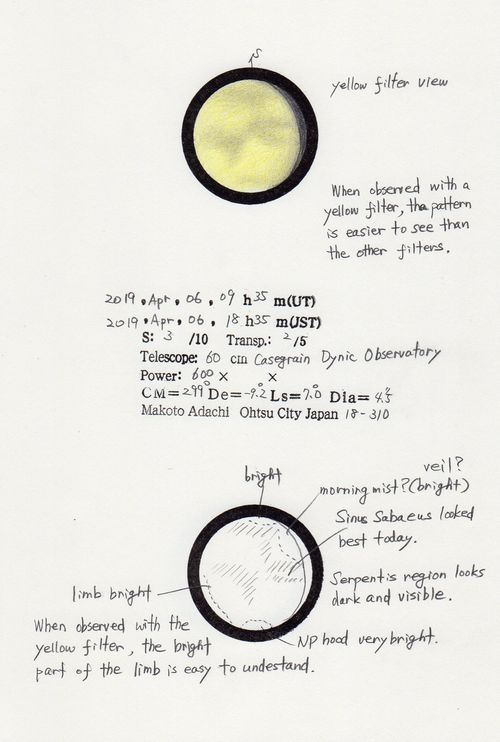 S
yellow filter view
When observed with a
yellow filter, the pattern
is easier to see than
the other filters.
2019. Apr. 06, 09 h35 m(UT)
2019. Apr. 06, 18 h35 m(JST)
S: 3 /10 Transp.: 2/5
Telescope: 60 cm Casegrain Dynic Observatory
Power: 600 × ×
CM=299° De=-9.2° Ls=7.0° Dia=4.5"
Makoto Adachi Ohtsu City Japan 18-310
bright
veil?
morning mist? (bright)
Sinus Sabaeus looked
best today.
Serpentis region looks
dark and visible.
limb bright
When observed with the
yellow filter, the bright
part of the limb is easy to undestand.
NP hood very bright.